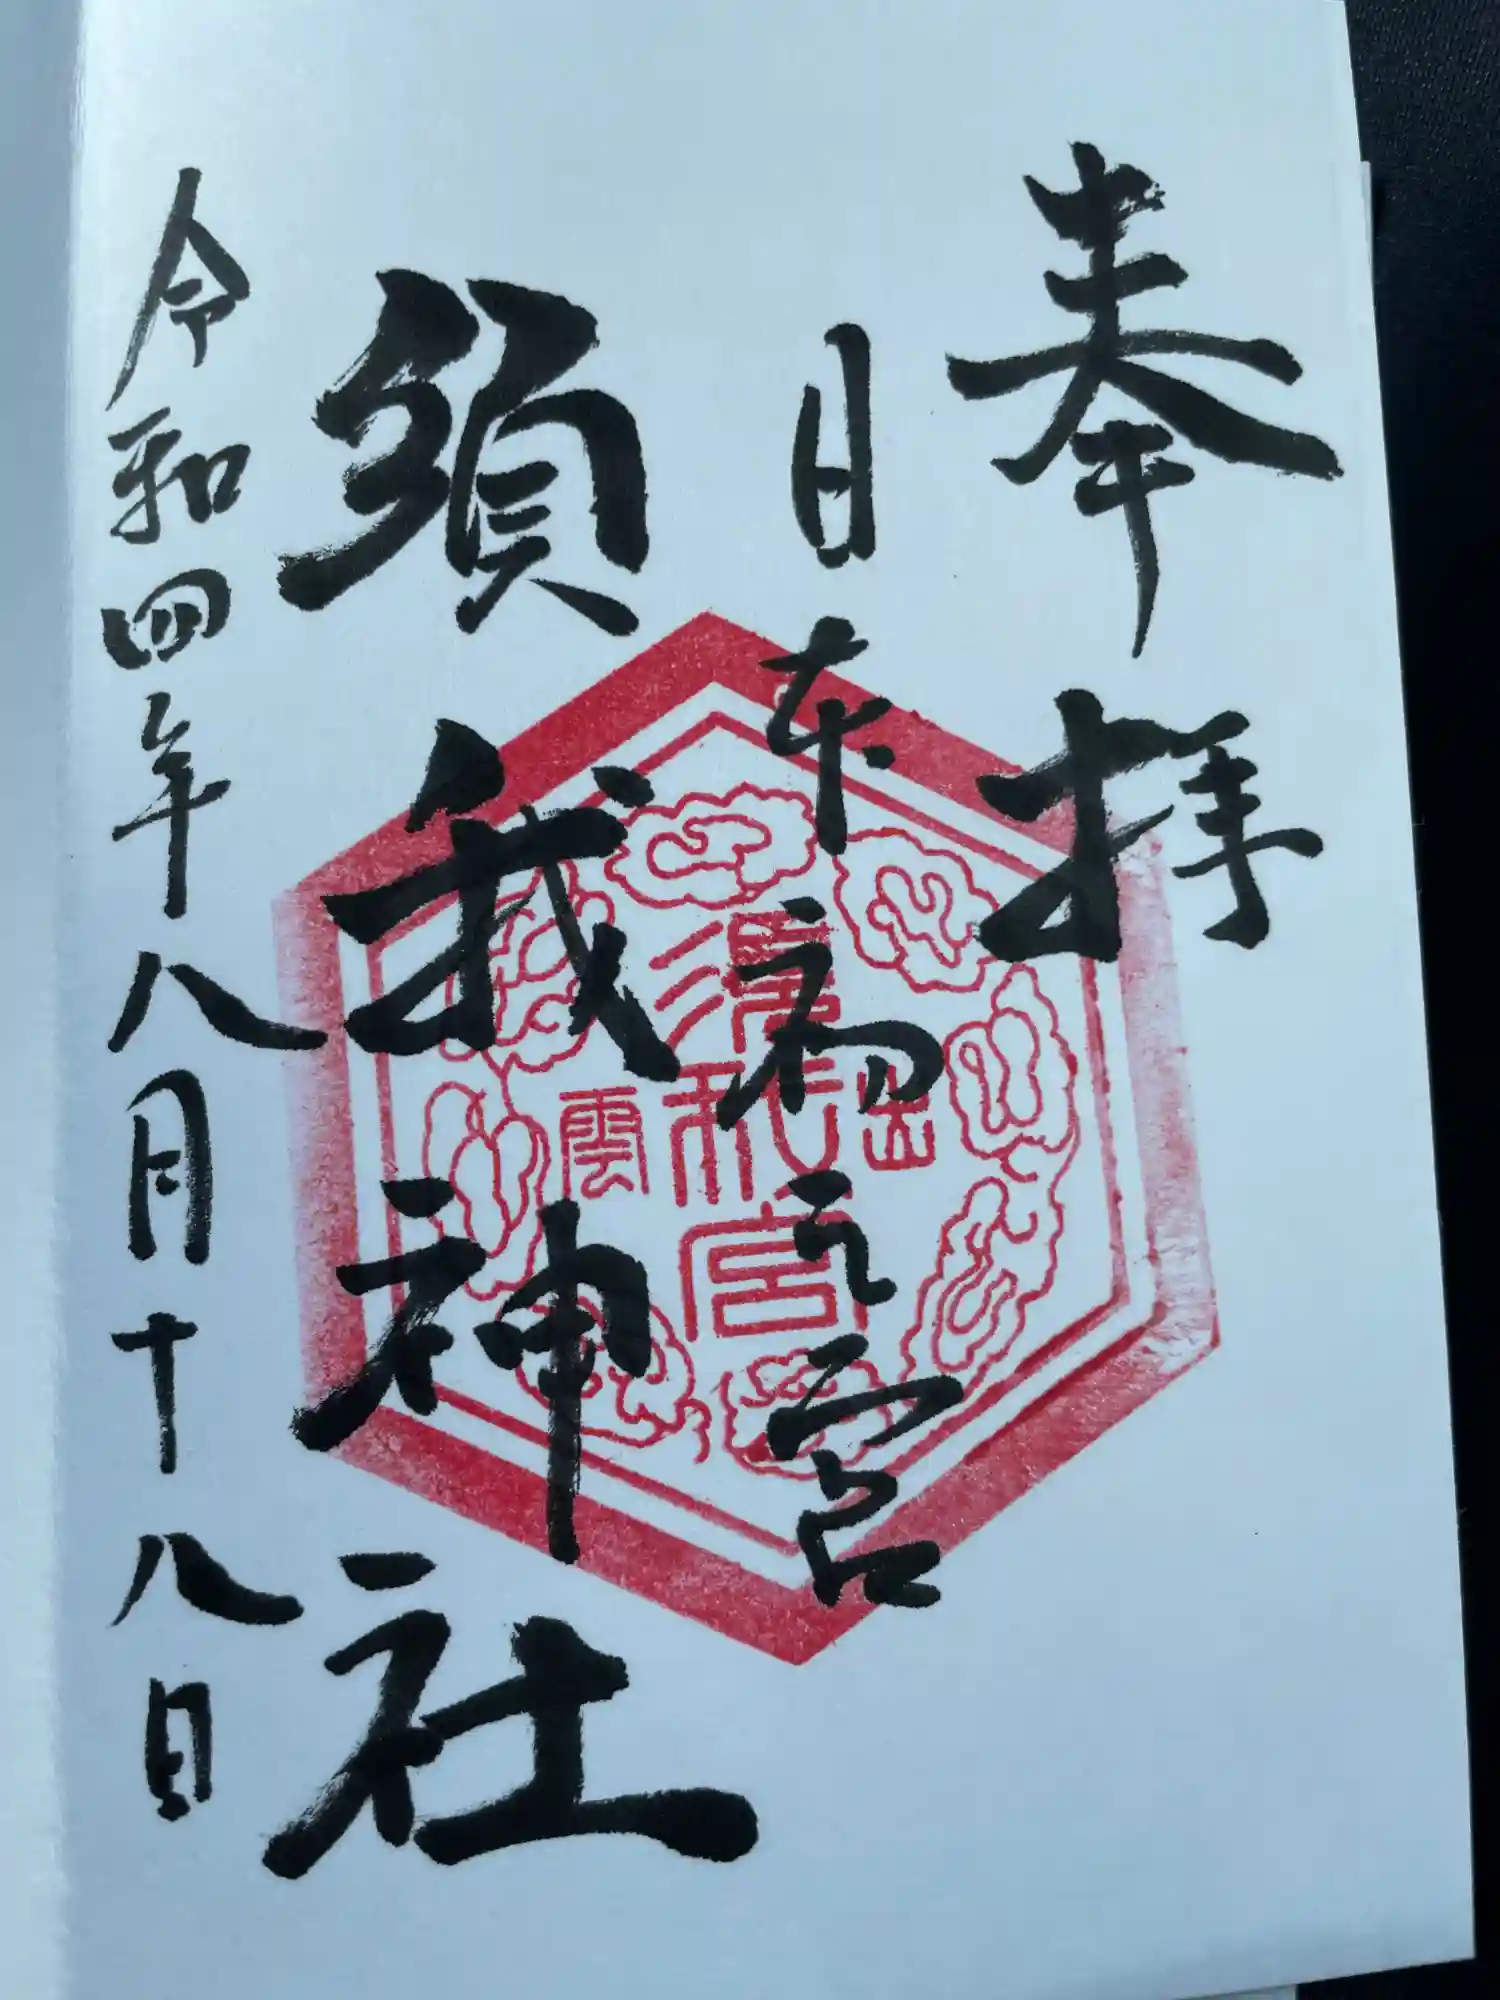 奉拝
日本初之宮
須我神社
令和四年八月十八日
出
雲
須我宮